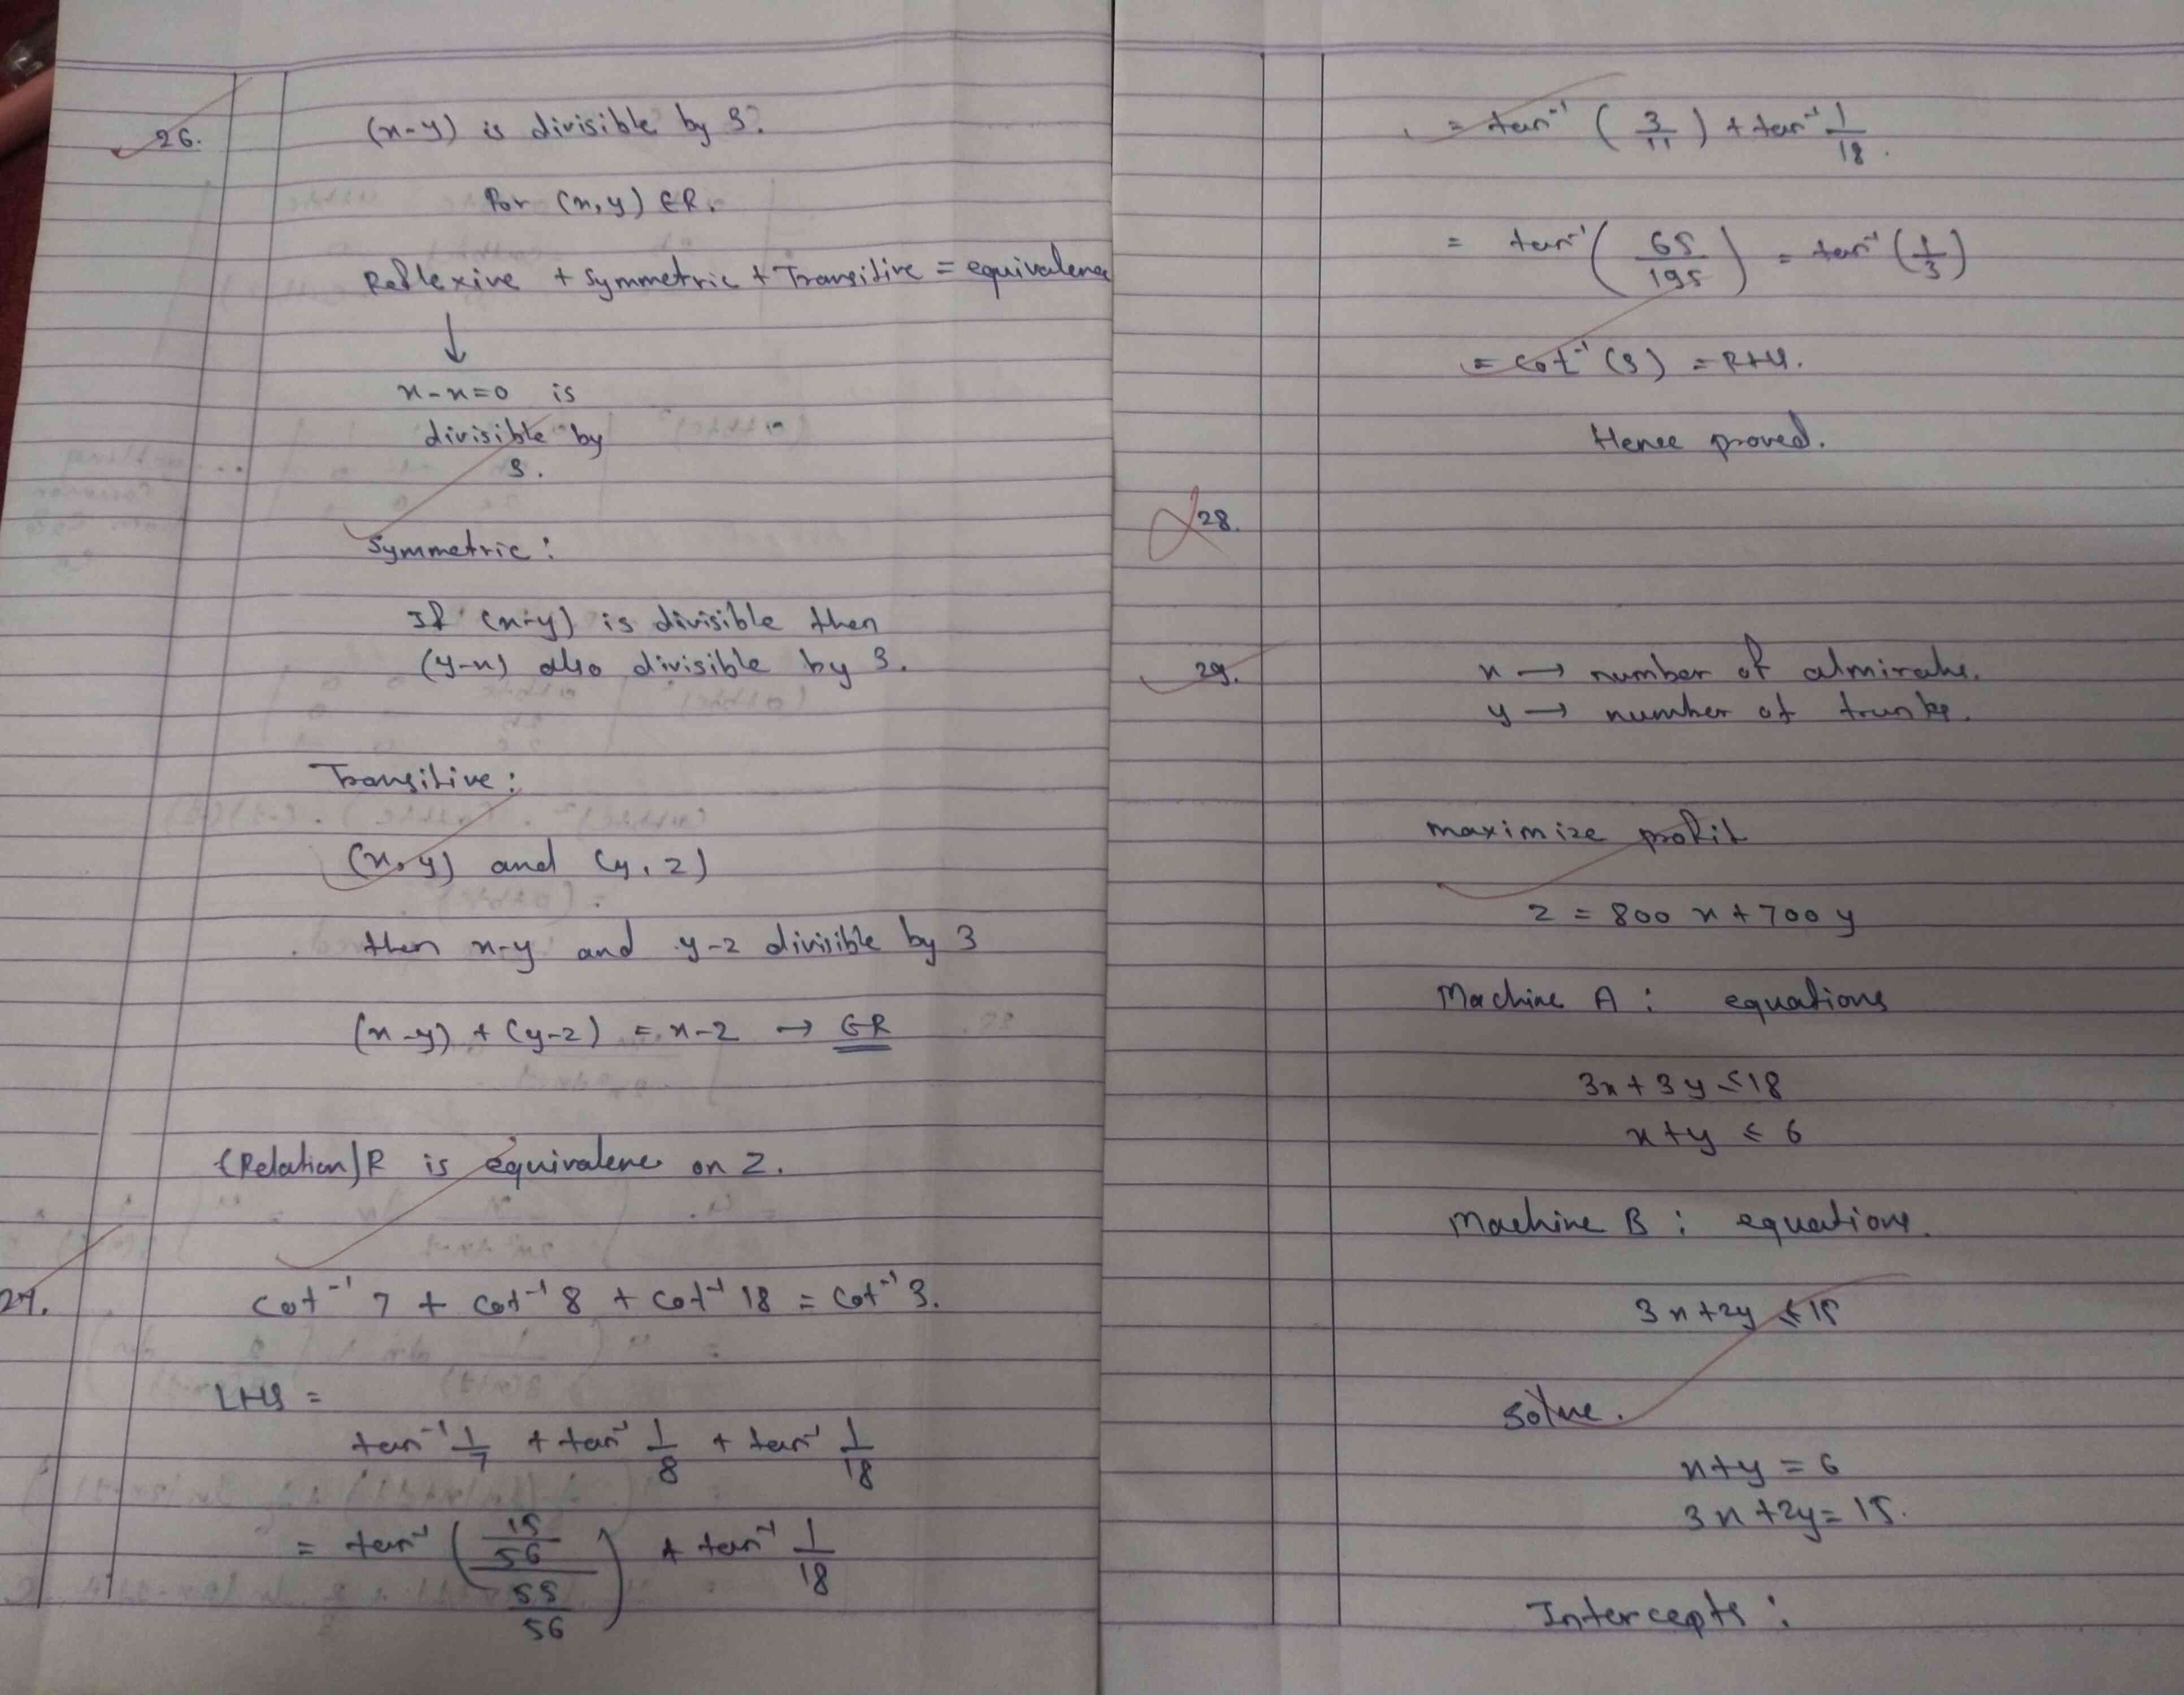 26.
(x-y) is divisible by 3.
for (x,y) ∈R.
Reflexive + Symmetric + Transitive = equivalence
↓
x-x=0 is
divisible by
3.
Symmetric:
If (x-y) is divisible then
(y-x) also divisible by 3.
Transitive:
(x,y) and (y,z)
then x-y and y-z divisible by 3
(x-y) + (y-z) = x-z → ∈R
(Relation) R is equivalence on Z.
27.
cot⁻¹ 7 + cot⁻¹ 8 + cot⁻¹ 18 = cot⁻¹ 3.
LHS =
tan⁻¹ 1/7 + tan⁻¹ 1/8 + tan⁻¹ 1/18
= tan⁻¹ ((15/56)/(55/56)) + tan⁻¹ 1/18
= tan⁻¹ (3/11) + tan⁻¹ 1/18.
= tan⁻¹ (65/195) = tan⁻¹ (1/3)
= cot⁻¹ (3) = RHS.
Hence proved.
28.
29.
x → number of almirahs.
y → number of trunks.
maximize profit
z = 800 x + 700 y
Machine A : equations
3x + 3y ≤ 18
x+y ≤ 6
Machine B : equations.
3x+2y ≤ 15
Solve.
x+y = 6
3x+2y= 15.
Intercepts :